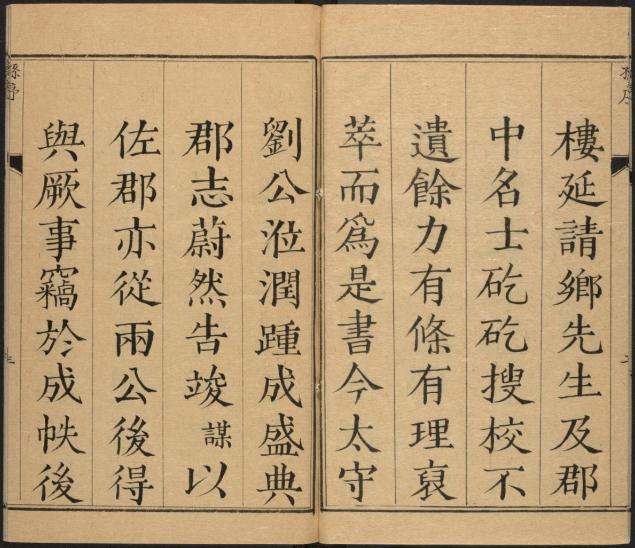 樓延請鄉先生及郡
中名士矻矻搜校不
遺餘力有條有理裒
萃而爲是書今太守
劉公涖潤踵成盛典
郡志蔚然告竣謀以
佐郡亦從兩公後得
與厥事竊於成帙後